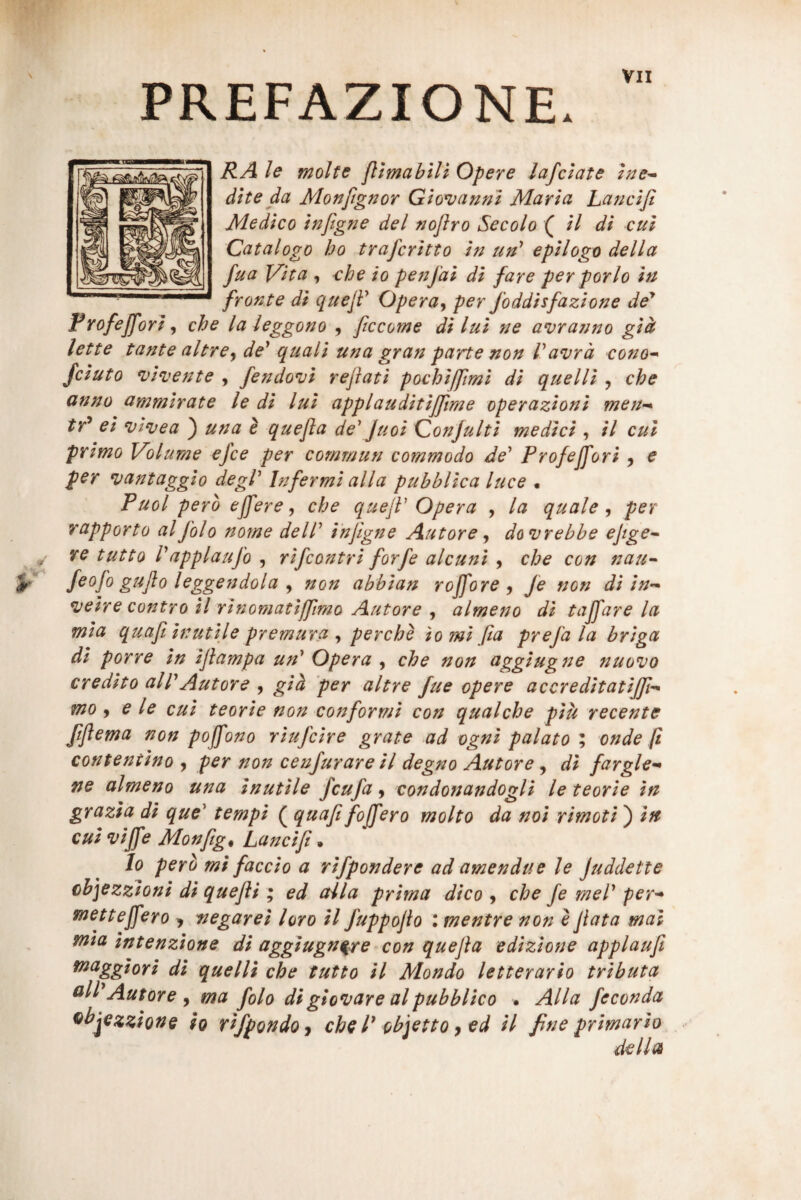 VII
PREFAZIONE.
FRA le molte ſtimabili Opere laſciate ine-
dite da Monſignor Giovanni Maria Lanciſi
Medico inſigne del noſtro Secolo ( il di cui
Catalogo ho traſcritto in un' epilogo della
ſua Vita , che io penſai di fare per porlo in
fronte di queſt' Opera, per ſoddisfazione de'
Profeſſori, che la leggono , ſiccome di lui ne avranno già
lette tante altre, de' quali una gran parte non l'avrà cono-
ſciuto vivente , ſendovi reſtati pochiſſimi di quelli , che
anno ammirate le di lui applauditiſſime operazioni men-
tr' ei vivea ) una è queſta de' ſuoi Conſulti medici , il cui
primo Volume eſce per commun commodo de' Profeſſori , e
per vantaggio degl' Infermi alla pubblica luce .
Puol però eſſere, che queſt' Opera , la quale , per
rapporto al ſolo nome dell' inſigne Autore , dovrebbe eſige-
re tutto l'applauſo , riſcontri forſe alcuni , che con nau-
ſeoſo guſto leggendola , non abbian roſſore , ſe non di in-
veire contro il rinomatiſſimo Autore , almeno di taſſare la
mia quaſi inutile premura , perchè io mi ſia preſa la briga
di porre in iſtampa un' Opera , che non aggiugne nuovo
credito all'Autore , già per altre ſue opere accreditatiſſi-
mo , e le cui teorie non conformi con qualche più recente
ſiſtema non poſſono riuſcire grate ad ogni palato ; onde ſi
contentino , per non cenſurare il degno Autore , di fargle-
ne almeno una inutile ſcuſa , condonandogli le teorie in
grazia di que' tempi ( quaſi foſſero molto da noi rimoti ) in
cui viſſe Monſig. Lanciſi .
Io però mi faccio a riſpondere ad amendue le ſuddette
objezzioni di queſti ; ed alla prima dico , che ſe mel' per-
metteſſero , negarei loro il ſuppoſto : mentre non è ſtata mai
mia intenzione di aggiugnere con queſta edizione applauſi
maggiori di quelli che tutto il Mondo letterario tributa
all'Autore , ma ſolo di giovare al pubblico . Alla ſeconda
objezzione io riſpondo , che l' objetto , ed il fine primario
della